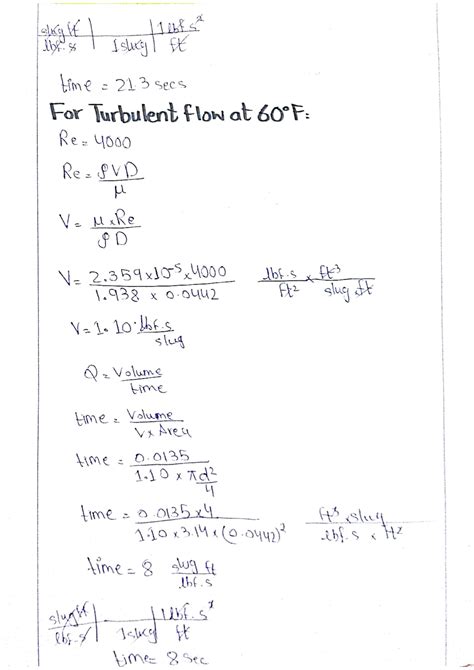 slug ft | | 1 lbf.s²
lbf.s | 1 slug | ft
time = 213 secs
For Turbulent flow at 60°F:
Re = 4000
Re = ρVD / μ
V = μ×Re / ρD
V = 2.359×10⁻⁵×4000 / 1.938 × 0.0442 lbf.s / ft² × ft³ / slug ft
V = 1.10 lbf.s / slug
Q = Volume / time
time = Volume / V×Area
time = 0.0135 / 1.10 × πd²/4
time = 0.0135×4 / 1.10×3.14×(0.0442)² ft³×slug / lbf.s × ft²
time = 8 slug ft / lbf.s
slug ft | | 1 lbf.s²
lbf.s | 1 slug | ft
time = 8 sec